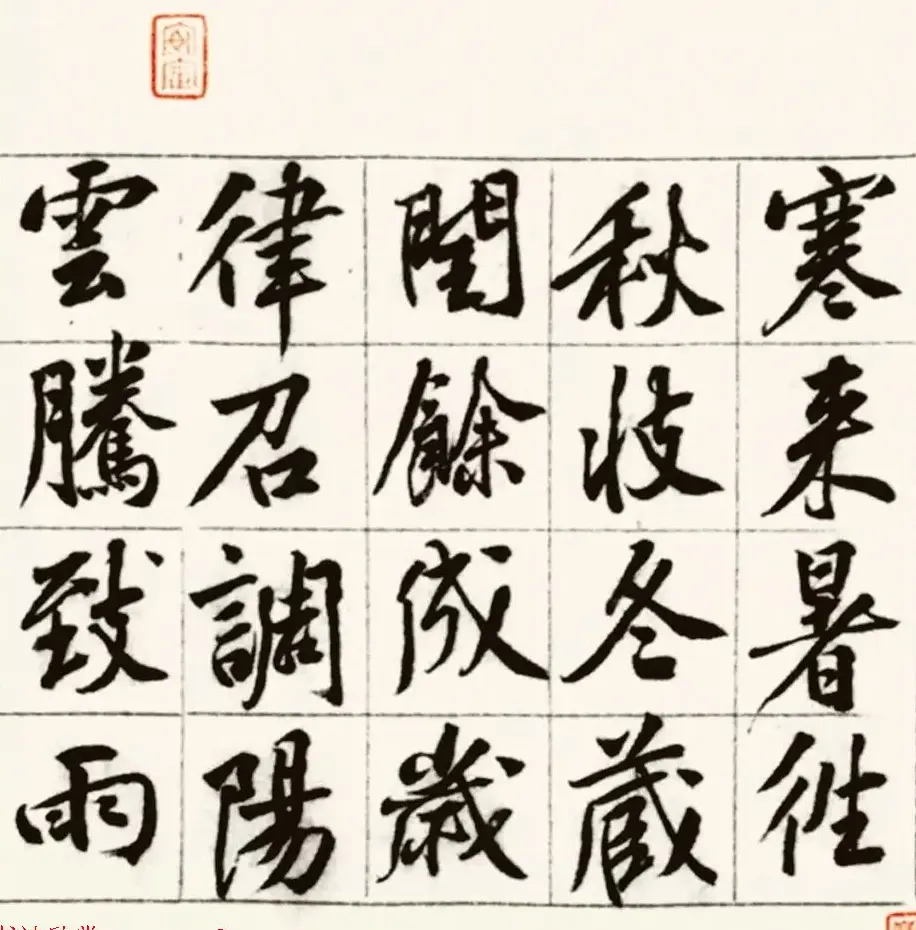 寒来暑往
秋收冬蔵
閏餘成歲
律召調陽
雲騰致雨